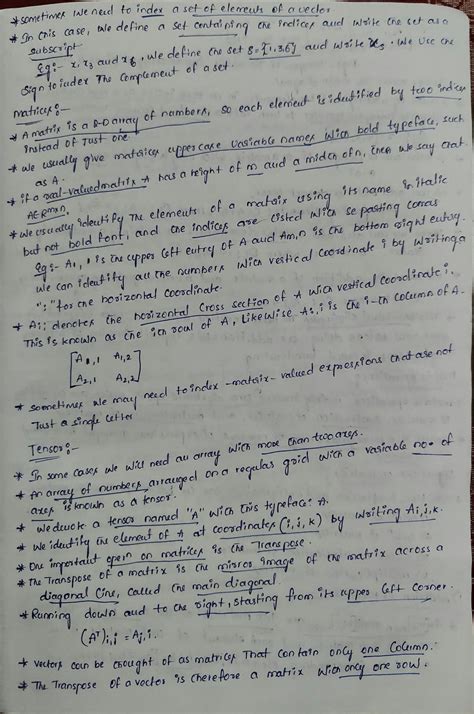 * sometimes we need to index a set of elements of a vector
* In this case, we define a set containing the indices and write the set as a
subscript
Eg:- x1, x3 and x6, we define the set S={1,3,6} and write xs. We use the
sign to index the complement of a set.
Matrices:-
* A matrix is a 2-D array of numbers, so each element is identified by two indices
instead of just one.
* we usually give matrices uppercase variable names with bold typeface, such
as A.
* if a real-valued matrix A has a height of m and a width of n, then we say that
A∈Rmxn.
* we usually identify the elements of a matrix using its name in italic
but not bold font, and the indices are listed with separating commas
Eg:- A1,1 is the upper left entry of A and Am,n is the bottom right entry.
we can identify all the numbers with vertical coordinate i by writing a
":" for the horizontal coordinate.
* Ai: denotes the horizontal cross section of A with vertical coordinate i.
This is known as the ith row of A, Likewise A:,i is the i-th column of A.
[A1,1 A1,2
A2,1 A2,2]
* sometimes we may need to index -matrix-valued expressions that are not
Just a single letter
Tensor:-
* In some cases we will need an array with more than two axes.
* An array of numbers arranged on a regular grid with a variable no= of
axes is known as a tensor.
* we denote a tensor named "A" with this typeface: A.
* we identify the element of A at coordinates (i,j,k) by writing Ai,j,k.
* One important opern on matrices is the Transpose.
* The Transpose of a matrix is the mirror image of the matrix across a
diagonal line, called the main diagonal.
* Running down and to the right, starting from its upper left corner.
(AT)i,j = Aj,i.
* vectors can be thought of as matrices that contain only one column.
* The Transpose of a vector is therefore a matrix with only one row.